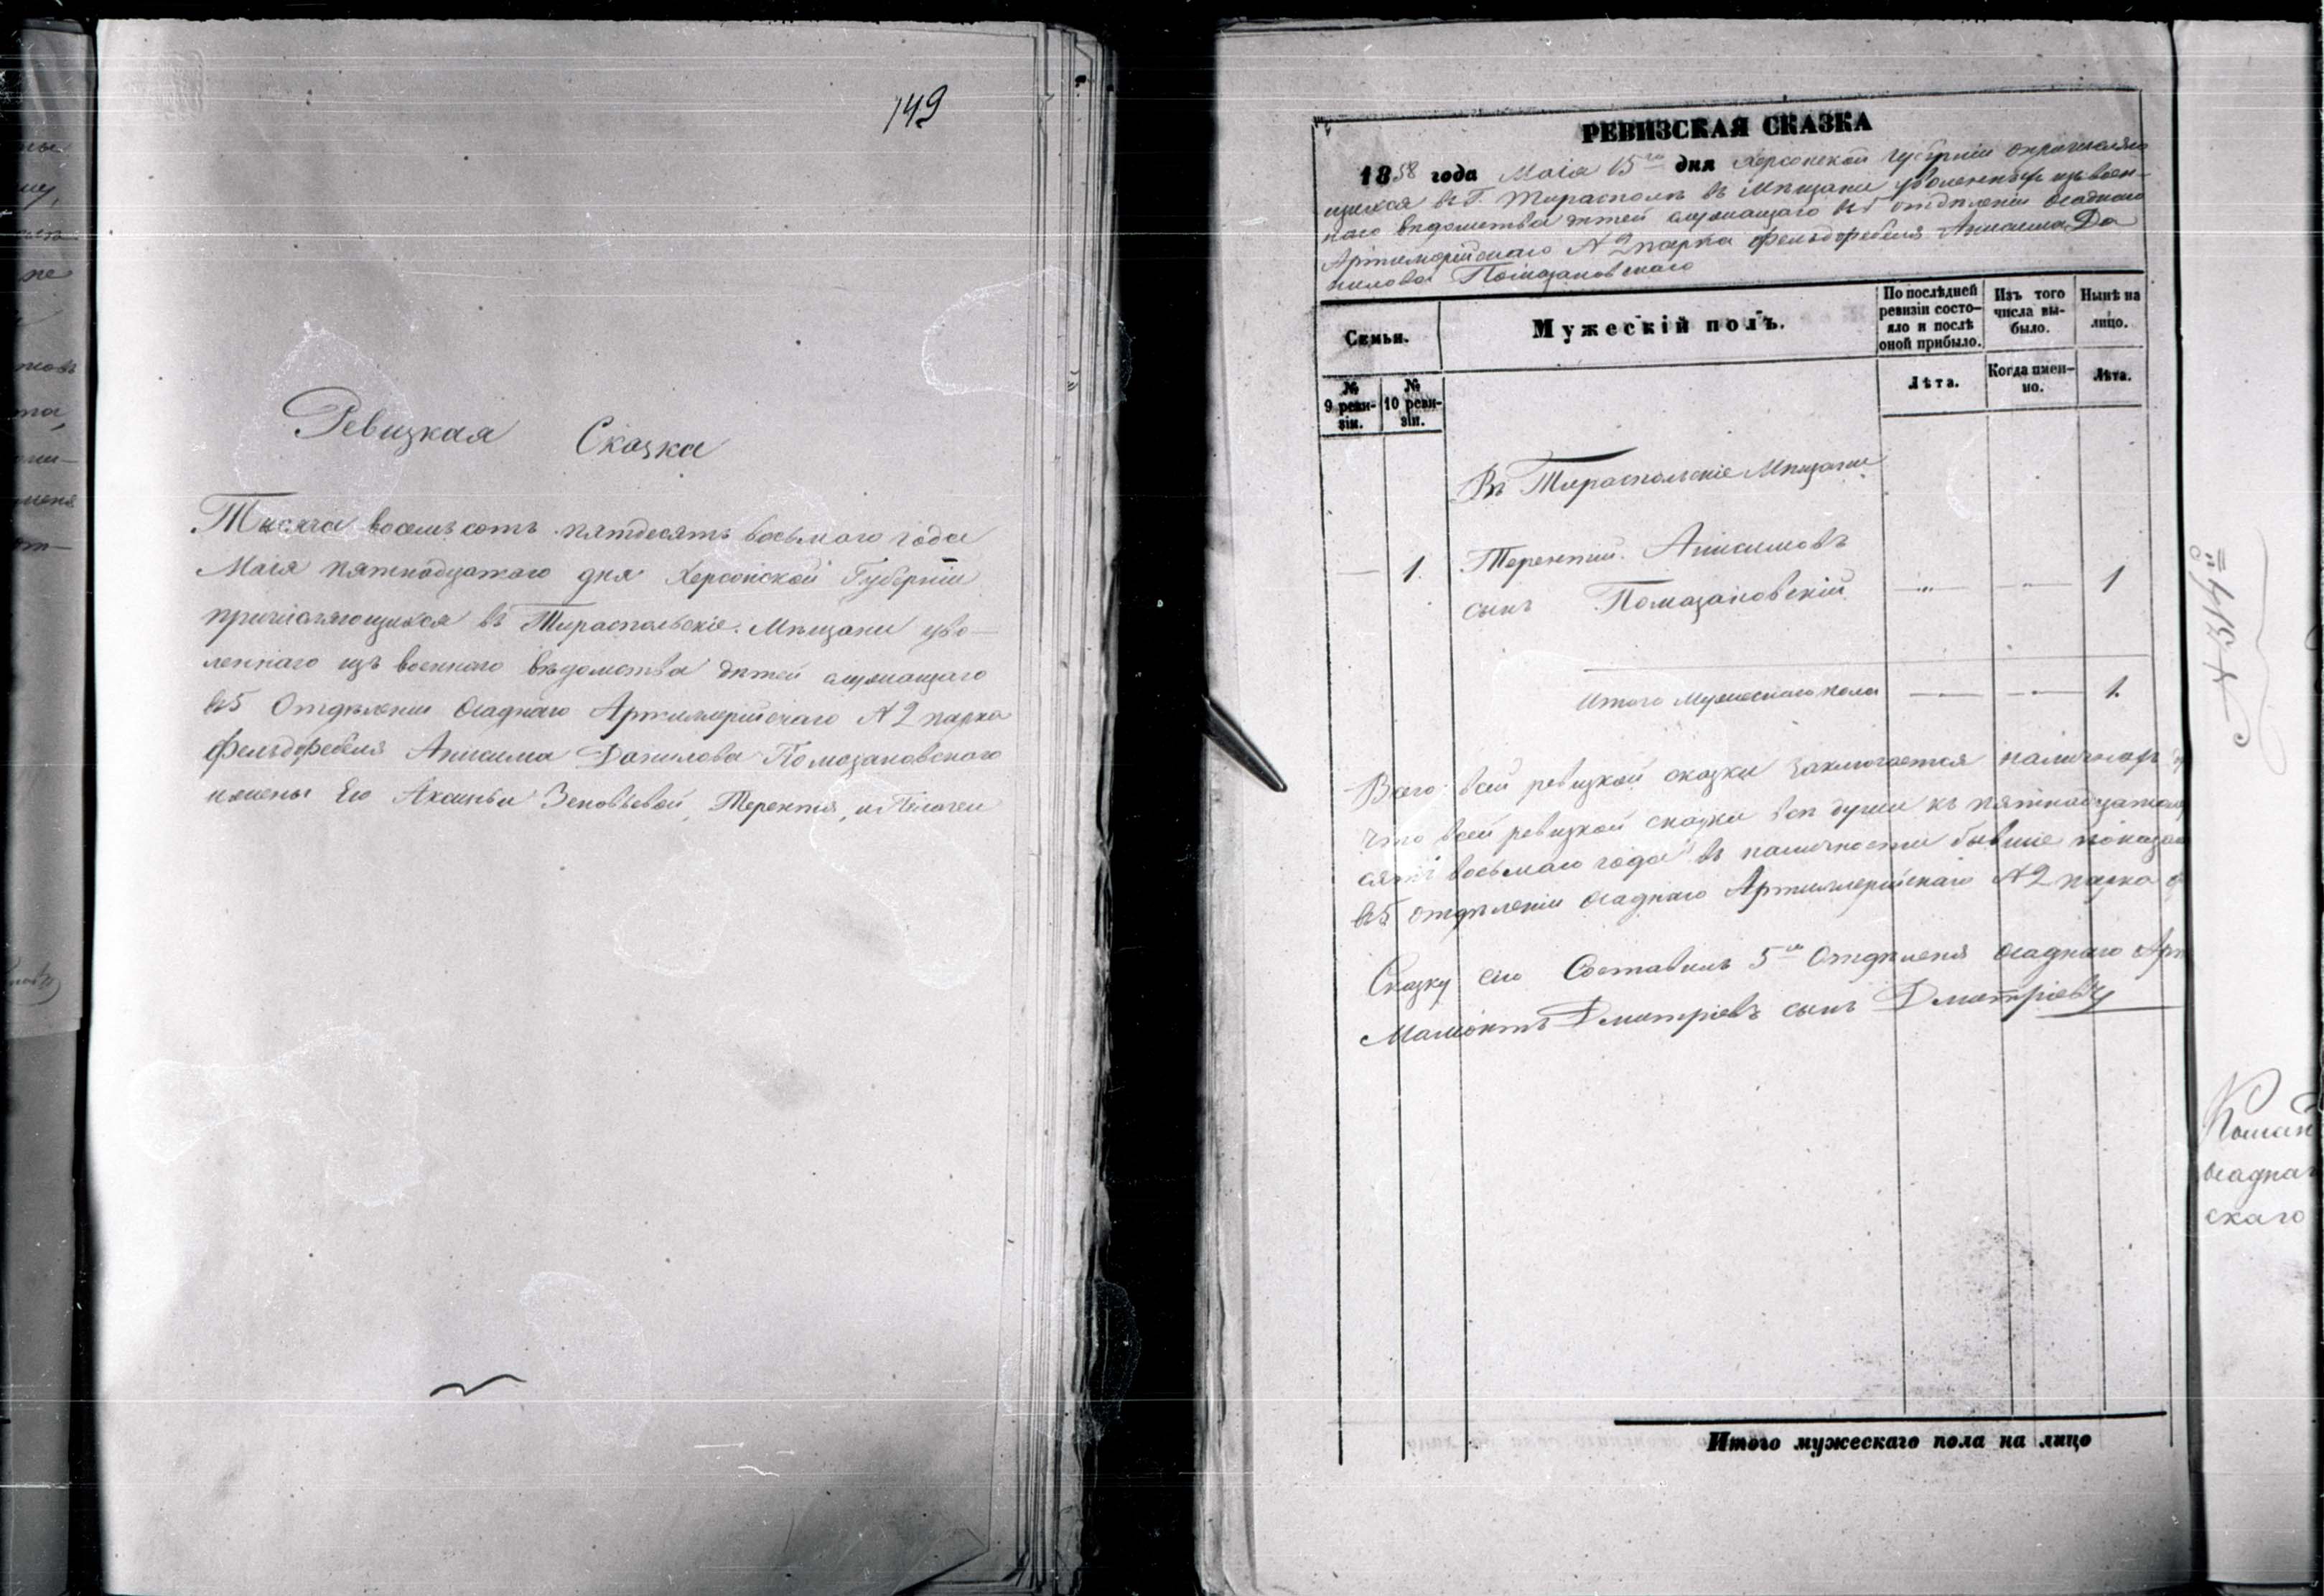 149
Ревизкая Сказка
Тысяча восемъсотъ пятдесятъ восьмаго года
Маія пятнадцатаго дня Херсонской Губерніи
причисляющихся въ Тираспольскіе Мѣщани уво–
леннаго изъ военнаго вѣдомства дѣтей служащаго
въ 5 Отдѣленіи Осаднаго Артиллерійскаго N 2 парка
Фельдфебеля Анисима Данилова Помазановскаго
и жены Его Аксиньи Зеновьевой, Терентія, и Пелагеи
РЕВИЗСКАЯ СКАЗКА
1858 года Маія 15го дня Херсонской Губерніи
щихся въ Г. Тирасполѣ въ Мѣщани уволенныхъ изъ воен–
наго вѣдомства дѣтей служащаго въ 5 отдѣленіи Осаднаго
Артиллерійскаго N 2 парка Фельдфебеля Анисима Да
нилова Помазановскаго
Семьи.
Мужескій полъ.
По послѣдней ревизіи состо-яло и послѣ оной прибыло.
Изъ того числа вы-было.
Нынѣ на лицо.
№ 9 реви-зіи.
№ 10 реви-зіи.
Лѣта.
Когда имен-но.
Лѣта.
Въ Тираспольскіе Мѣщани
— 1. Терентій Анисимовъ
сынъ Помазановскій —"— —"— 1
Итого Мужескаго пола — — 1.
Всего въ сей ревизкой сказки заключается наличныхъ
что въ сей ревизкой сказки всѣ души къ пятнадцатому
сятъ восьмаго года въ наличности бывшіе показан
въ 5 отдѣленіи Осаднаго Артиллерійскаго N 2 парка
Сказку сію Составилъ 5го Отдѣленія Осаднаго Арт
Мамонтъ Дмитріевъ сынъ Дмитріевъ
Итого мужескаго пола на лицо
Коман
осаднаг
скаго